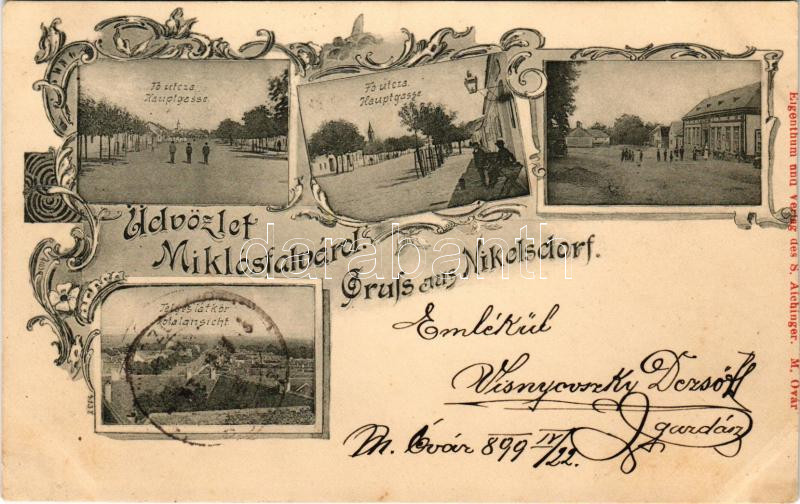 Fő utcza.
Hauptgasse
Fő utcza.
Hauptgasse
Üdvözlet
Miklósfalváról.
Gruss aus Nikelsdorf.
Teljes látkép
Totalansicht
darabanth.com
Emlékül
M. Óvár 899 IV/22.
Eigenthum und Verlag des S. Aichinger. M. Óvár